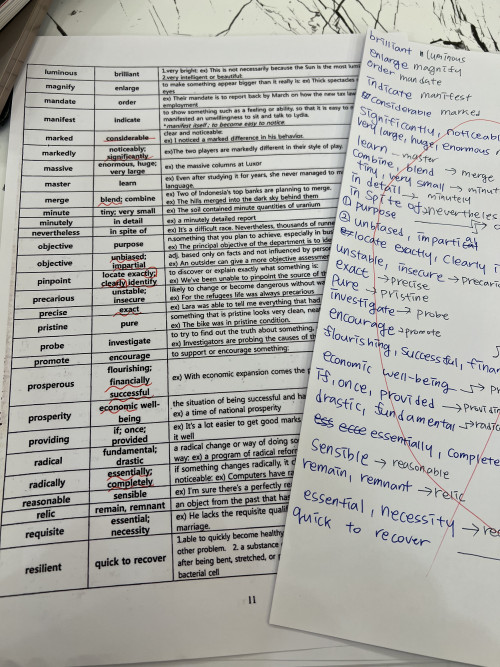 luminous brilliant 1.very bright: ex) This is not necessarily because the Sun is the most
2.very intelligent or beautiful.
magnify enlarge to make something appear bigger than it really is: ex) Thick spectacles
eyes
mandate order ex) Their mandate is to report back by March on how the new tax
employment
manifest indicate to show something such as a feeling or ability, so that it is easy to
manifested an unwillingness to sit and talk to Lydia.
*manifest itself: to become easy to notice
marked considerable clear and noticeable:
ex) I noticed a marked difference in his behavior.
markedly noticeably; significantly ex)The two players are markedly different in their style of play.
massive enormous, huge; very large ex) the massive columns at Luxor
master learn ex) Even after studying it for years, she never managed to
language.
merge blend; combine ex) Two of Indonesia's top banks are planning to merge.
ex) The hills merged into the dark sky behind them
minute tiny; very small ex) The soil contained minute quantities of uranium
minutely in detail ex) a minutely detailed report
nevertheless in spite of ex) It's a difficult race. Nevertheless, thousands of
objective purpose n.something that you plan to achieve, especially in
ex) The principal objective of the department is to
objective unbiased; impartial adj. based only on facts and not influenced by
ex) An outsider can give a more objective
pinpoint locate exactly; clearly identify to discover or explain exactly what something is:
ex) We've been unable to pinpoint the source of
precarious unstable; insecure likely to change or become dangerous without
ex) For the refugees life was always precarious
precise exact ex) Lara was able to tell me everything that had
pristine pure something that is pristine looks very clean,
ex) The bike was in pristine condition.
probe investigate to try to find out the truth about something,
ex) Investigators are probing the causes of
promote encourage to support or encourage something:
prosperous flourishing; financially successful ex) With economic expansion comes the
prosperity economic well-being the situation of being successful and
ex) a time of national prosperity
providing if; once; provided ex) It's a lot easier to get good marks
it well
radical fundamental; drastic a radical change or way of doing
way: ex) a program of radical
radically essentially; completely if something changes radically, it
noticeable: ex) Computers have
reasonable sensible ex) I'm sure there's a perfectly
relic remain, remnant an object from the past that
requisite essential; necessity ex) He lacks the requisite
marriage.
resilient quick to recover 1.able to quickly become healthy
other problem. 2. a substance
after being bent, stretched, or
bacterial cell
11
brilliant luminous
enlarge magnity
order mandate
indicate manifest
considerable marked
significantly, noticeabl
very large, huge, enormous
learn master
combine, blend → merge
tiny, very small → minut
in detail → minutely
in spite of nevertheles
① purpose
② unbiased, impartial
locate exactly, clearly i
unstable, insecure → precari
exact → precise
pure → pristine
investigate → probe
encourage → promote
flourishing, successful, finan
economic well-being → pr
if, once, provided → providin
drastic, fundamental → radic
essentially, complete
sensible → reasonable
remain, remnant → relic
essential, necessity → req
quick to recover